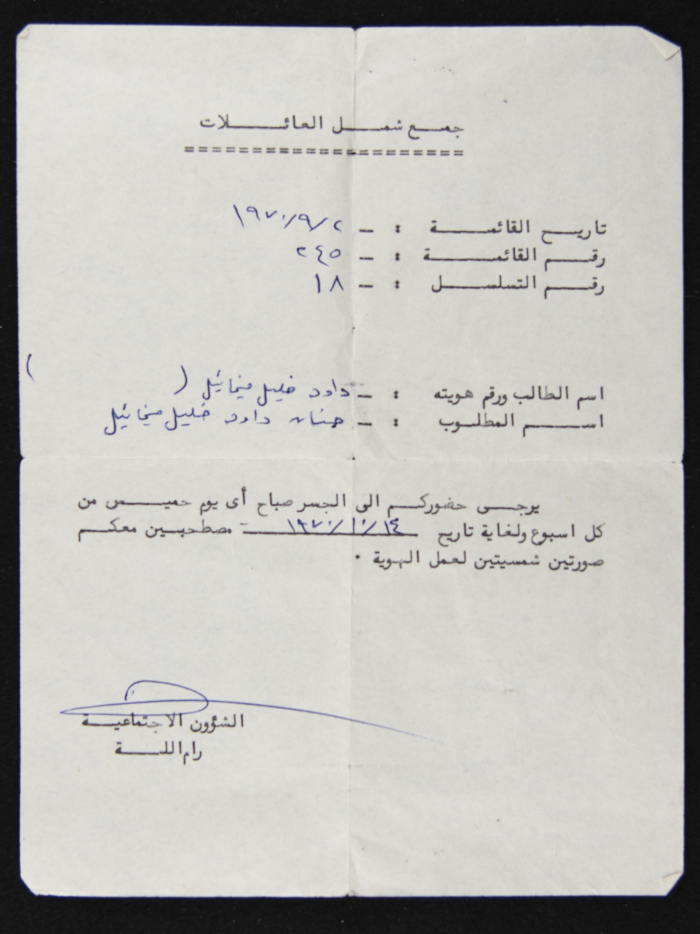 جمع شمل العائلات
====================
تاريخ القائمة : - ١٩٧٠/٩/٢
رقم القائمة : - ٢٤٥
رقم التسلسل : - ١٨
اسم الطالب ورقم هويته : - داود خليل ميخائيل ( )
اسم المطلوب : - حنان داود خليل ميخائيل
يرجى حضوركم الى الجسر صباح أى يوم خميس من
كل اسبوع ولغاية تاريخ ١٩٧٠/١٠/١٤ مصطحبين معكم
صورتين شمسيتين لعمل الهوية .
الشؤون الاجتماعية
رام اللة